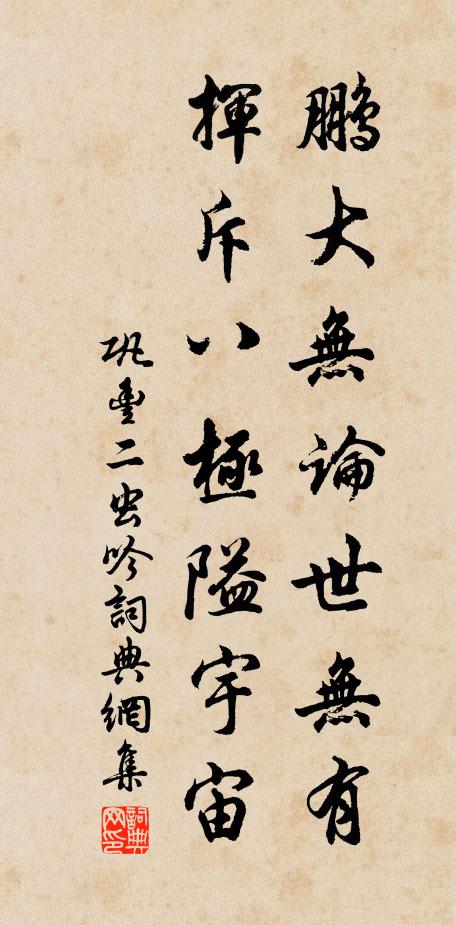 鵬大無論世無有
揮斥八極隘宇宙
巩豊二虫吟詞典網集
詞典网印